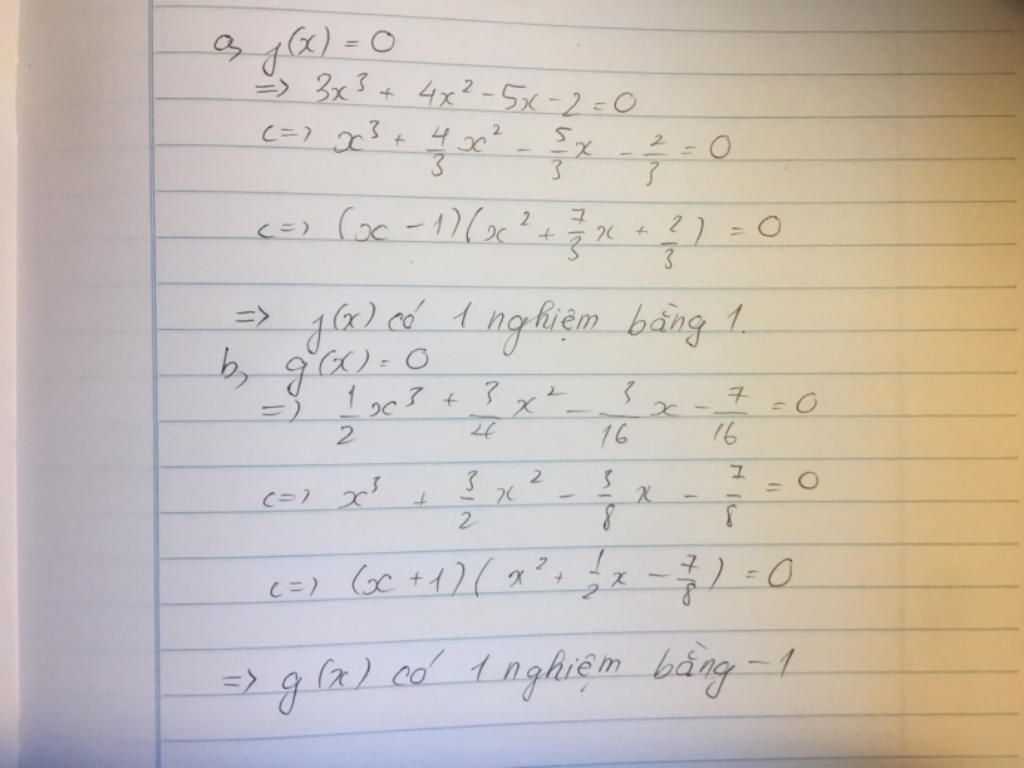 a, f(x) = 0
=> 3x³ + 4x² - 5x - 2 = 0
<=> x³ + 4/3 x² - 5/3 x - 2/3 = 0
<=> (x - 1)(x² + 7/3 x + 2/3) = 0
=> f(x) có 1 nghiệm bằng 1.
b, g(x) = 0
=> 1/2 x³ + 3/4 x² - 3/16 x - 7/16 = 0
<=> x³ + 3/2 x² - 3/8 x - 7/8 = 0
<=> (x + 1)(x² + 1/2 x - 7/8) = 0
=> g(x) có 1 nghiệm bằng -1